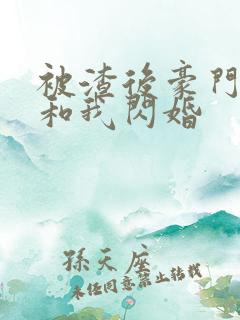 被渣後豪門
和我閃婚
孫天座
未經同意禁止轉載